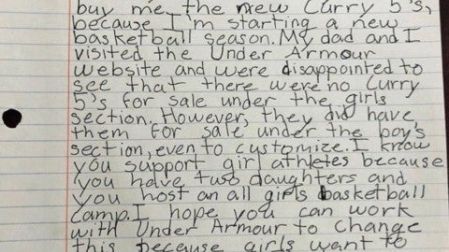 buy me the new Curry 5's,
because I'm starting a new
basketball season. My dad and I
visited the Under Armour
website and were disappointed to
see that there were no Curry
5's for sale under the girls
section. However, they did have
them for sale under the boy's
section, even to customize. I know
you support girl athletes because
you have two daughters and
you host an all girls basketball
camp. I hope you can work
with Under Armour to change
this because girls want to